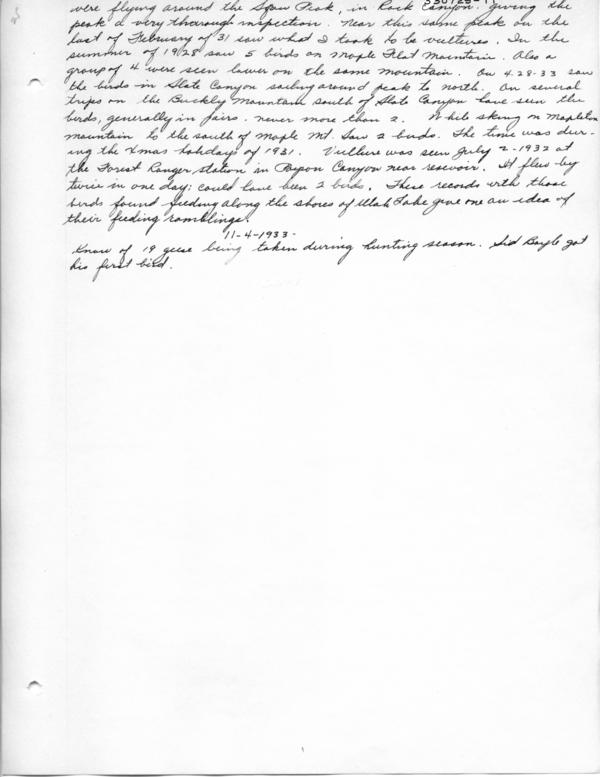 were flying around the Span Peak, in Rock Canyon. giving the
peak a very thorough inspection. Near this same peak on the
last of February of 31 saw what I took to be vultures. In the
summer of 1928 saw 5 birds on Maple Flat Mountain. Also a
group of 4 were seen lower on the same mountain. On 4-28-33 saw
the birds in Slate Canyon sailing around peak to north. On several
trips on the Buckly Mountain south of Slate Canyon have seen the
birds, generally in pairs. never more than 2. While skiing on Mapleton
mountain to the south of Maple Mt. Saw 2 birds. The time was dur-
ing the Xmas holidays of 1931. Vulture was seen July 2-1932 at
the Forest Ranger Station in Canyon near resevoir. It flew by
twice in one day; could have been 2 birds. These records with those
birds found feeding along the shores of Utah Lake give one an idea of
their feeding ramblings.
11-4-1933-
Know of 19 geese being taken during hunting season. Sid Boyle got
his first bird.